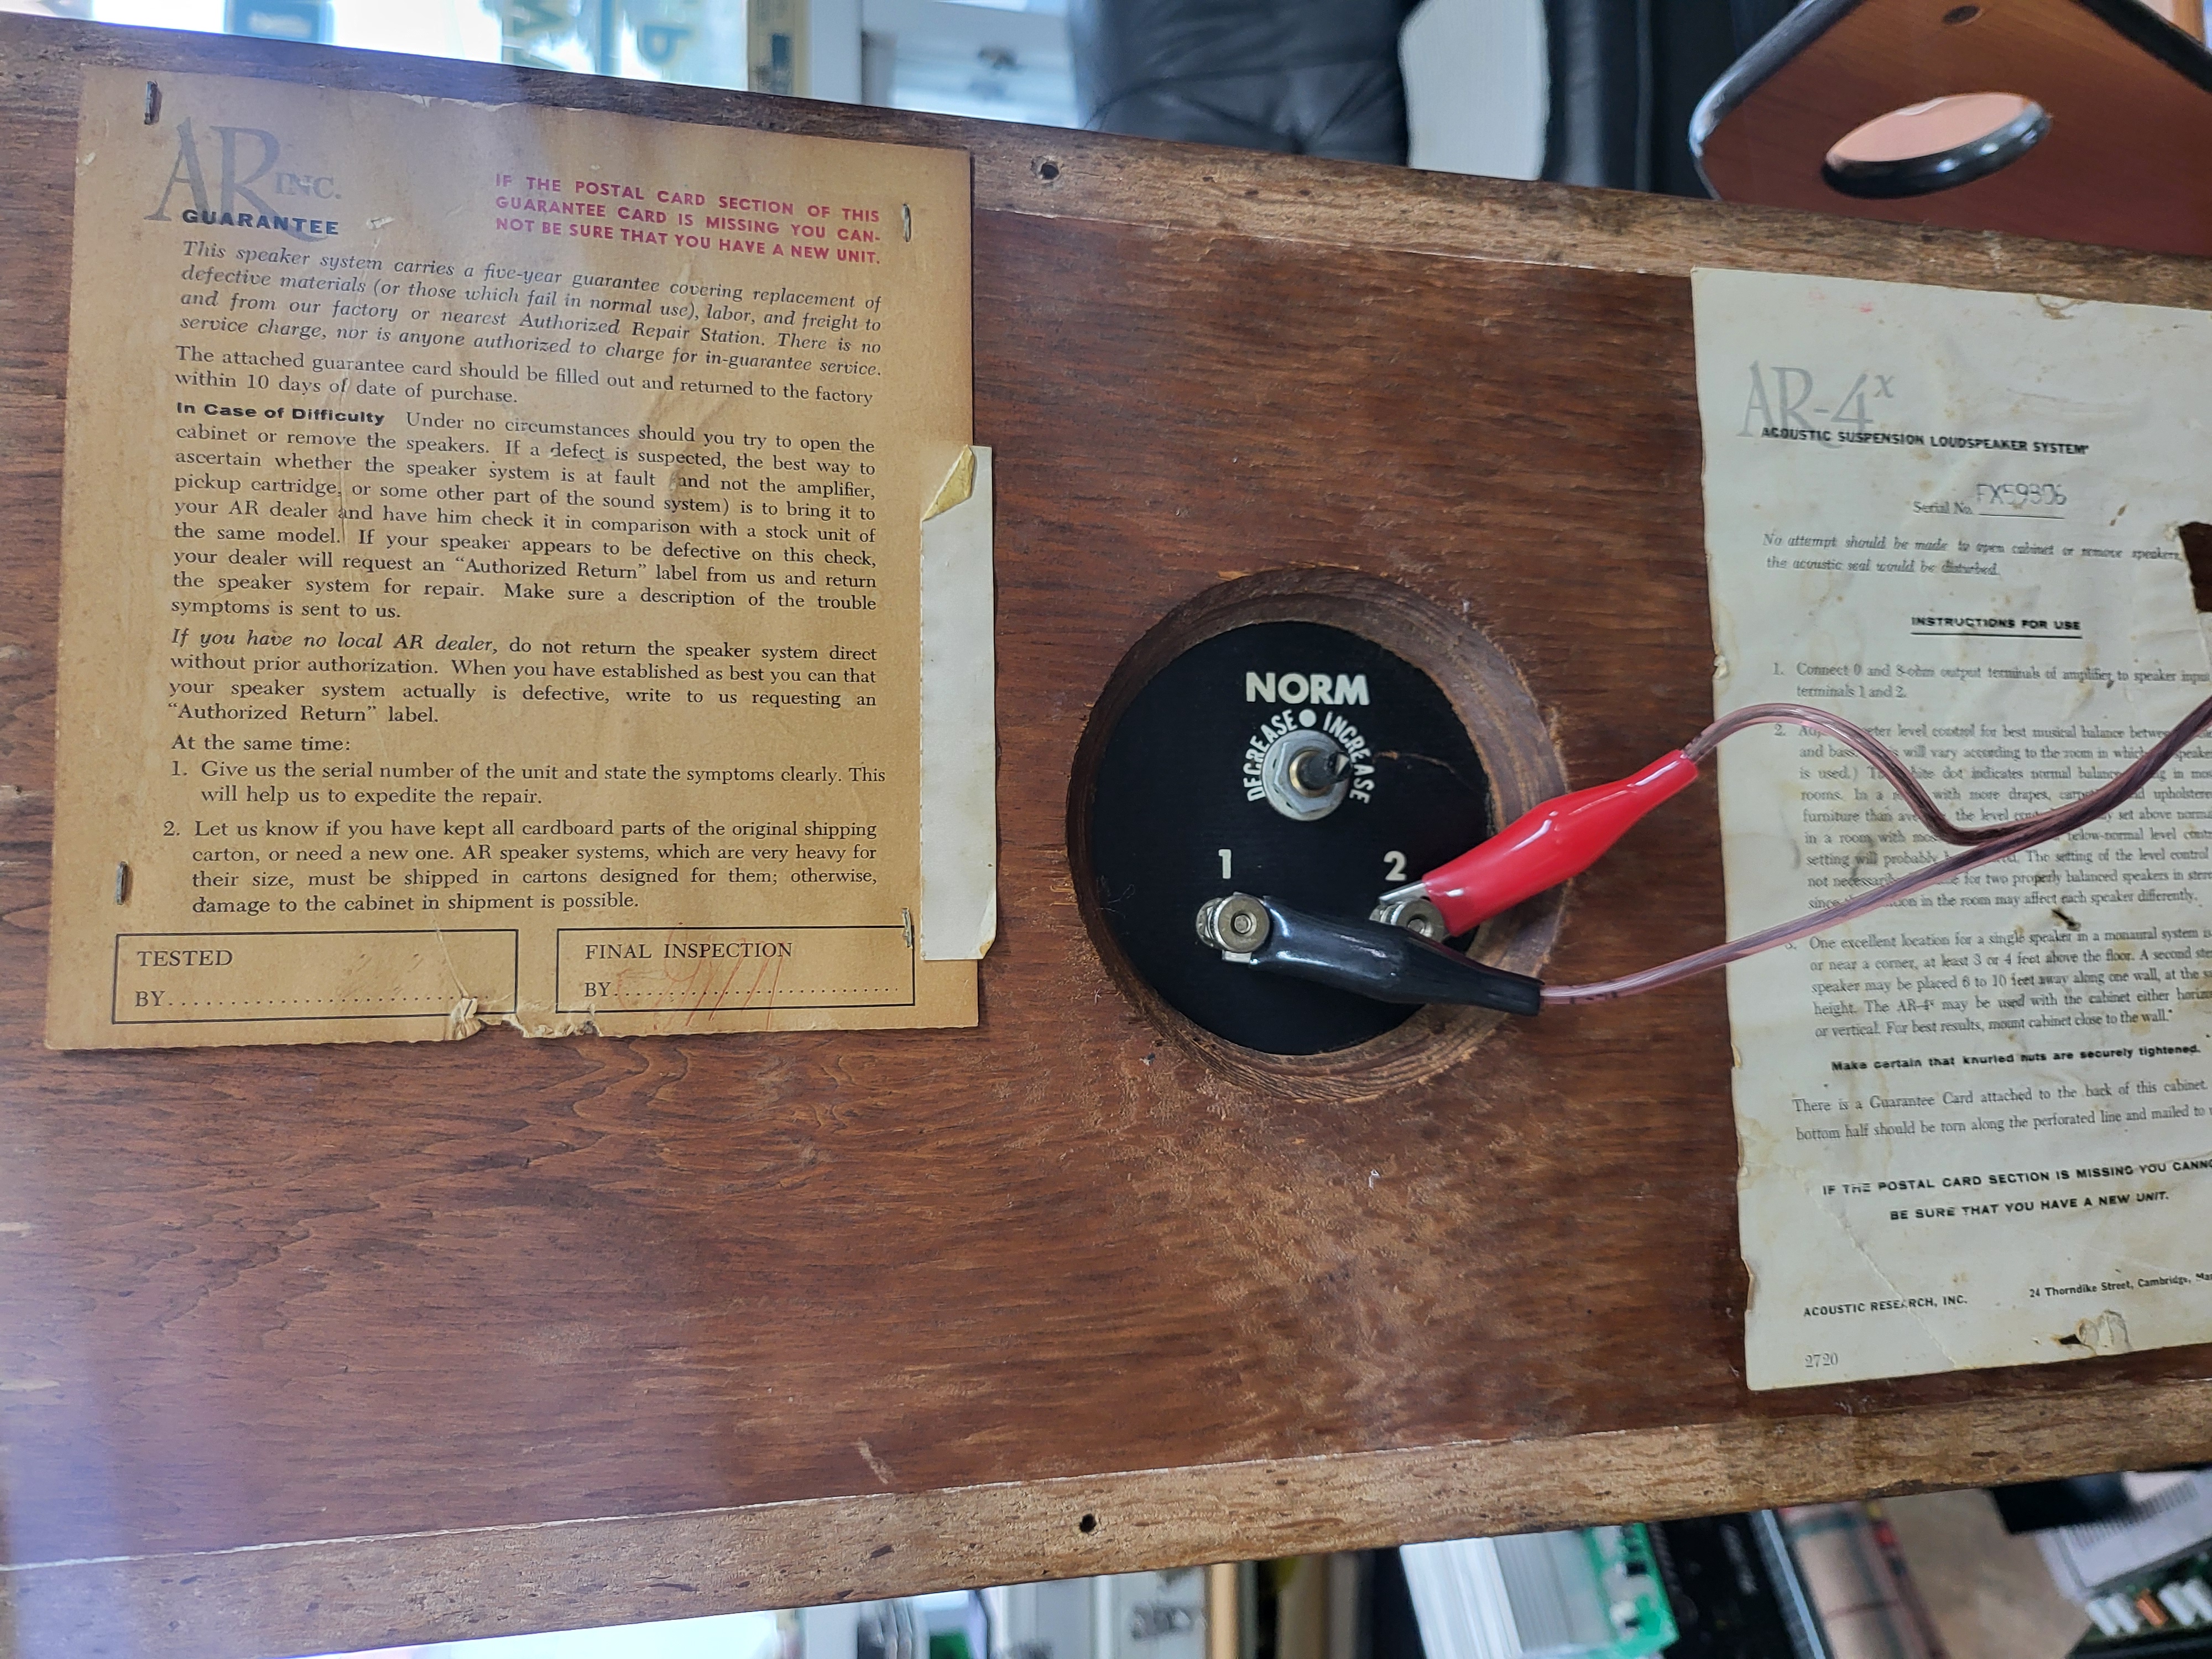 AR INC.
GUARANTEE
IF THE POSTAL CARD SECTION OF THIS
GUARANTEE CARD IS MISSING YOU CAN-
NOT BE SURE THAT YOU HAVE A NEW UNIT.
This speaker system carries a five-year guarantee covering replacement of
defective materials (or those which fail in normal use), labor, and freight to
and from our factory or nearest Authorized Repair Station. There is no
service charge, nor is anyone authorized to charge for in-guarantee service.
The attached guarantee card should be filled out and returned to the factory
within 10 days of date of purchase.
In Case of Difficulty Under no circumstances should you try to open the
cabinet or remove the speakers. If a defect is suspected, the best way to
ascertain whether the speaker system is at fault and not the amplifier,
pickup cartridge, or some other part of the sound system) is to bring it to
your AR dealer and have him check it in comparison with a stock unit of
the same model. If your speaker appears to be defective on this check,
your dealer will request an “Authorized Return” label from us and return
the speaker system for repair. Make sure a description of the trouble
symptoms is sent to us.
If you have no local AR dealer, do not return the speaker system direct
without prior authorization. When you have established as best you can that
your speaker system actually is defective, write to us requesting an
“Authorized Return” label.
At the same time:
1. Give us the serial number of the unit and state the symptoms clearly. This
will help us to expedite the repair.
2. Let us know if you have kept all cardboard parts of the original shipping
carton, or need a new one. AR speaker systems, which are very heavy for
their size, must be shipped in cartons designed for them; otherwise,
damage to the cabinet in shipment is possible.
TESTED
BY
FINAL INSPECTION
BY
NORM
DECREASE INCREASE
1 2
AR-4x
ACOUSTIC SUSPENSION LOUDSPEAKER SYSTEM*
Serial No.
No attempt should be made to open cabinet or remove speakers,
the acoustic seal would be disturbed.
INSTRUCTIONS FOR USE
1. Connect 0 and 8-ohm output terminals of amplifier to speaker input
terminals 1 and 2.
2. level control for best musical balance
and bass. will vary according to the room in which
is used.) dot indicates normal balance in
rooms. In a with more drapes, upholstered
furniture than the level set above
in a room with below-normal level
setting will probably The setting of the level control
not for two properly balanced speakers in
since in the room may affect each speaker differently.
3. One excellent location for a single speaker in a monaural system is
or near a corner, at least 3 or 4 feet above the floor. A second
speaker may be placed 6 to 10 feet away along one wall, at the
height. The AR-4x may be used with the cabinet either
or vertical. For best results, mount cabinet close to the wall.*
Make certain that knurled nuts are securely tightened.
There is a Guarantee Card attached to the back of this cabinet.
bottom half should be torn along the perforated line and mailed to
IF THE POSTAL CARD SECTION IS MISSING YOU
BE SURE THAT YOU HAVE A NEW UNIT.
ACOUSTIC RESEARCH, INC.
24 Thorndike Street, Cambridge,
2720